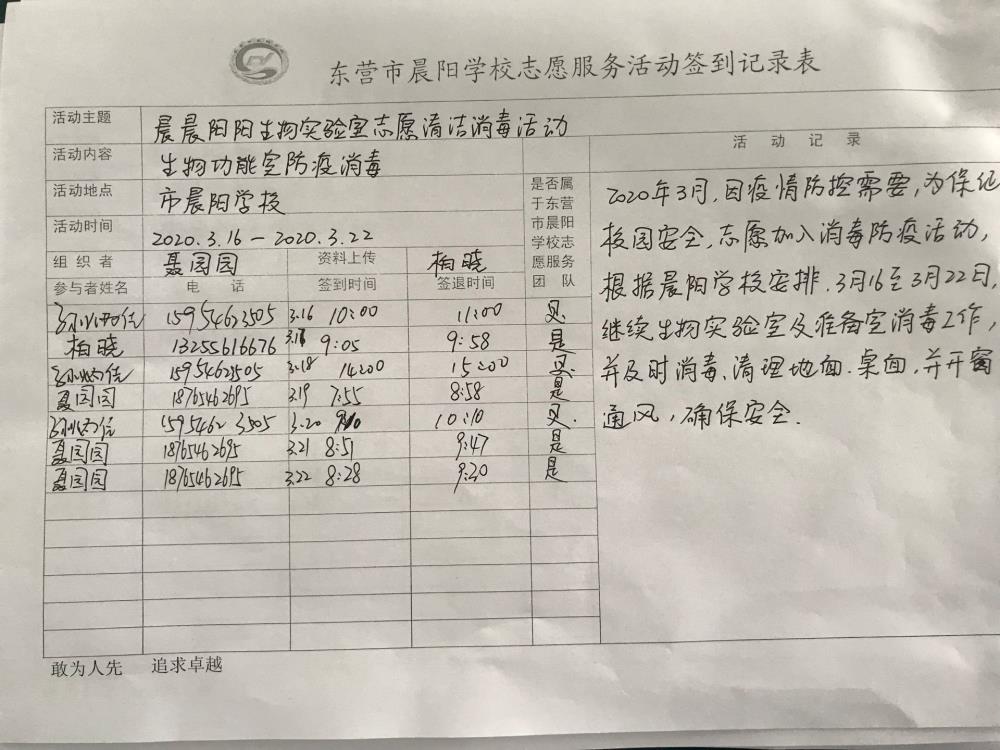 东营市晨阳学校志愿服务活动签到记录表
活动主题 晨晨阳阳生物实验室志愿清洁消毒活动
活动内容 生物功能室防疫消毒
活动地点 市晨阳学校
活动时间 2020.3.16-2020.3.22
组织者 聂园园 资料上传 柏晓
参与者姓名 电话 签到时间 签退时间 是否属于东营市晨阳学校志愿服务团队
15954623505 3.16 10:00 11:00 是
柏晓 13255616676 3.17 9:05 9:58 是
15954623505 3.18 14:00 15:00 是
聂园园 18765462695 3.19 7:55 8:58 是
15954623505 3.20 10:10 是
聂园园 18765462695 3.21 8:51 9:47 是
聂园园 18765462695 3.22 8:28 9:20 是
活动记录
2020年3月,因疫情防控需要,为保证
校园安全,志愿加入消毒防疫活动,
根据晨阳学校安排.3月16至3月22日,
继续生物实验室及准备室消毒工作,
并及时消毒、清理地面.桌面,并开窗
通风,确保安全.
敢为人先 追求卓越